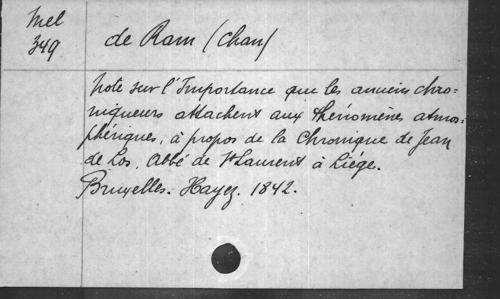 Mel
349
de Ram (Chan)
Note sur l'Importance que les anciens chro-
niqueurs attachent aux Phénomènes atmos-
phériques, à propos de la Chronique de Jean
de Los, Abbé de St Laurent à Liége.
Bruxelles. Hayez. 1842.